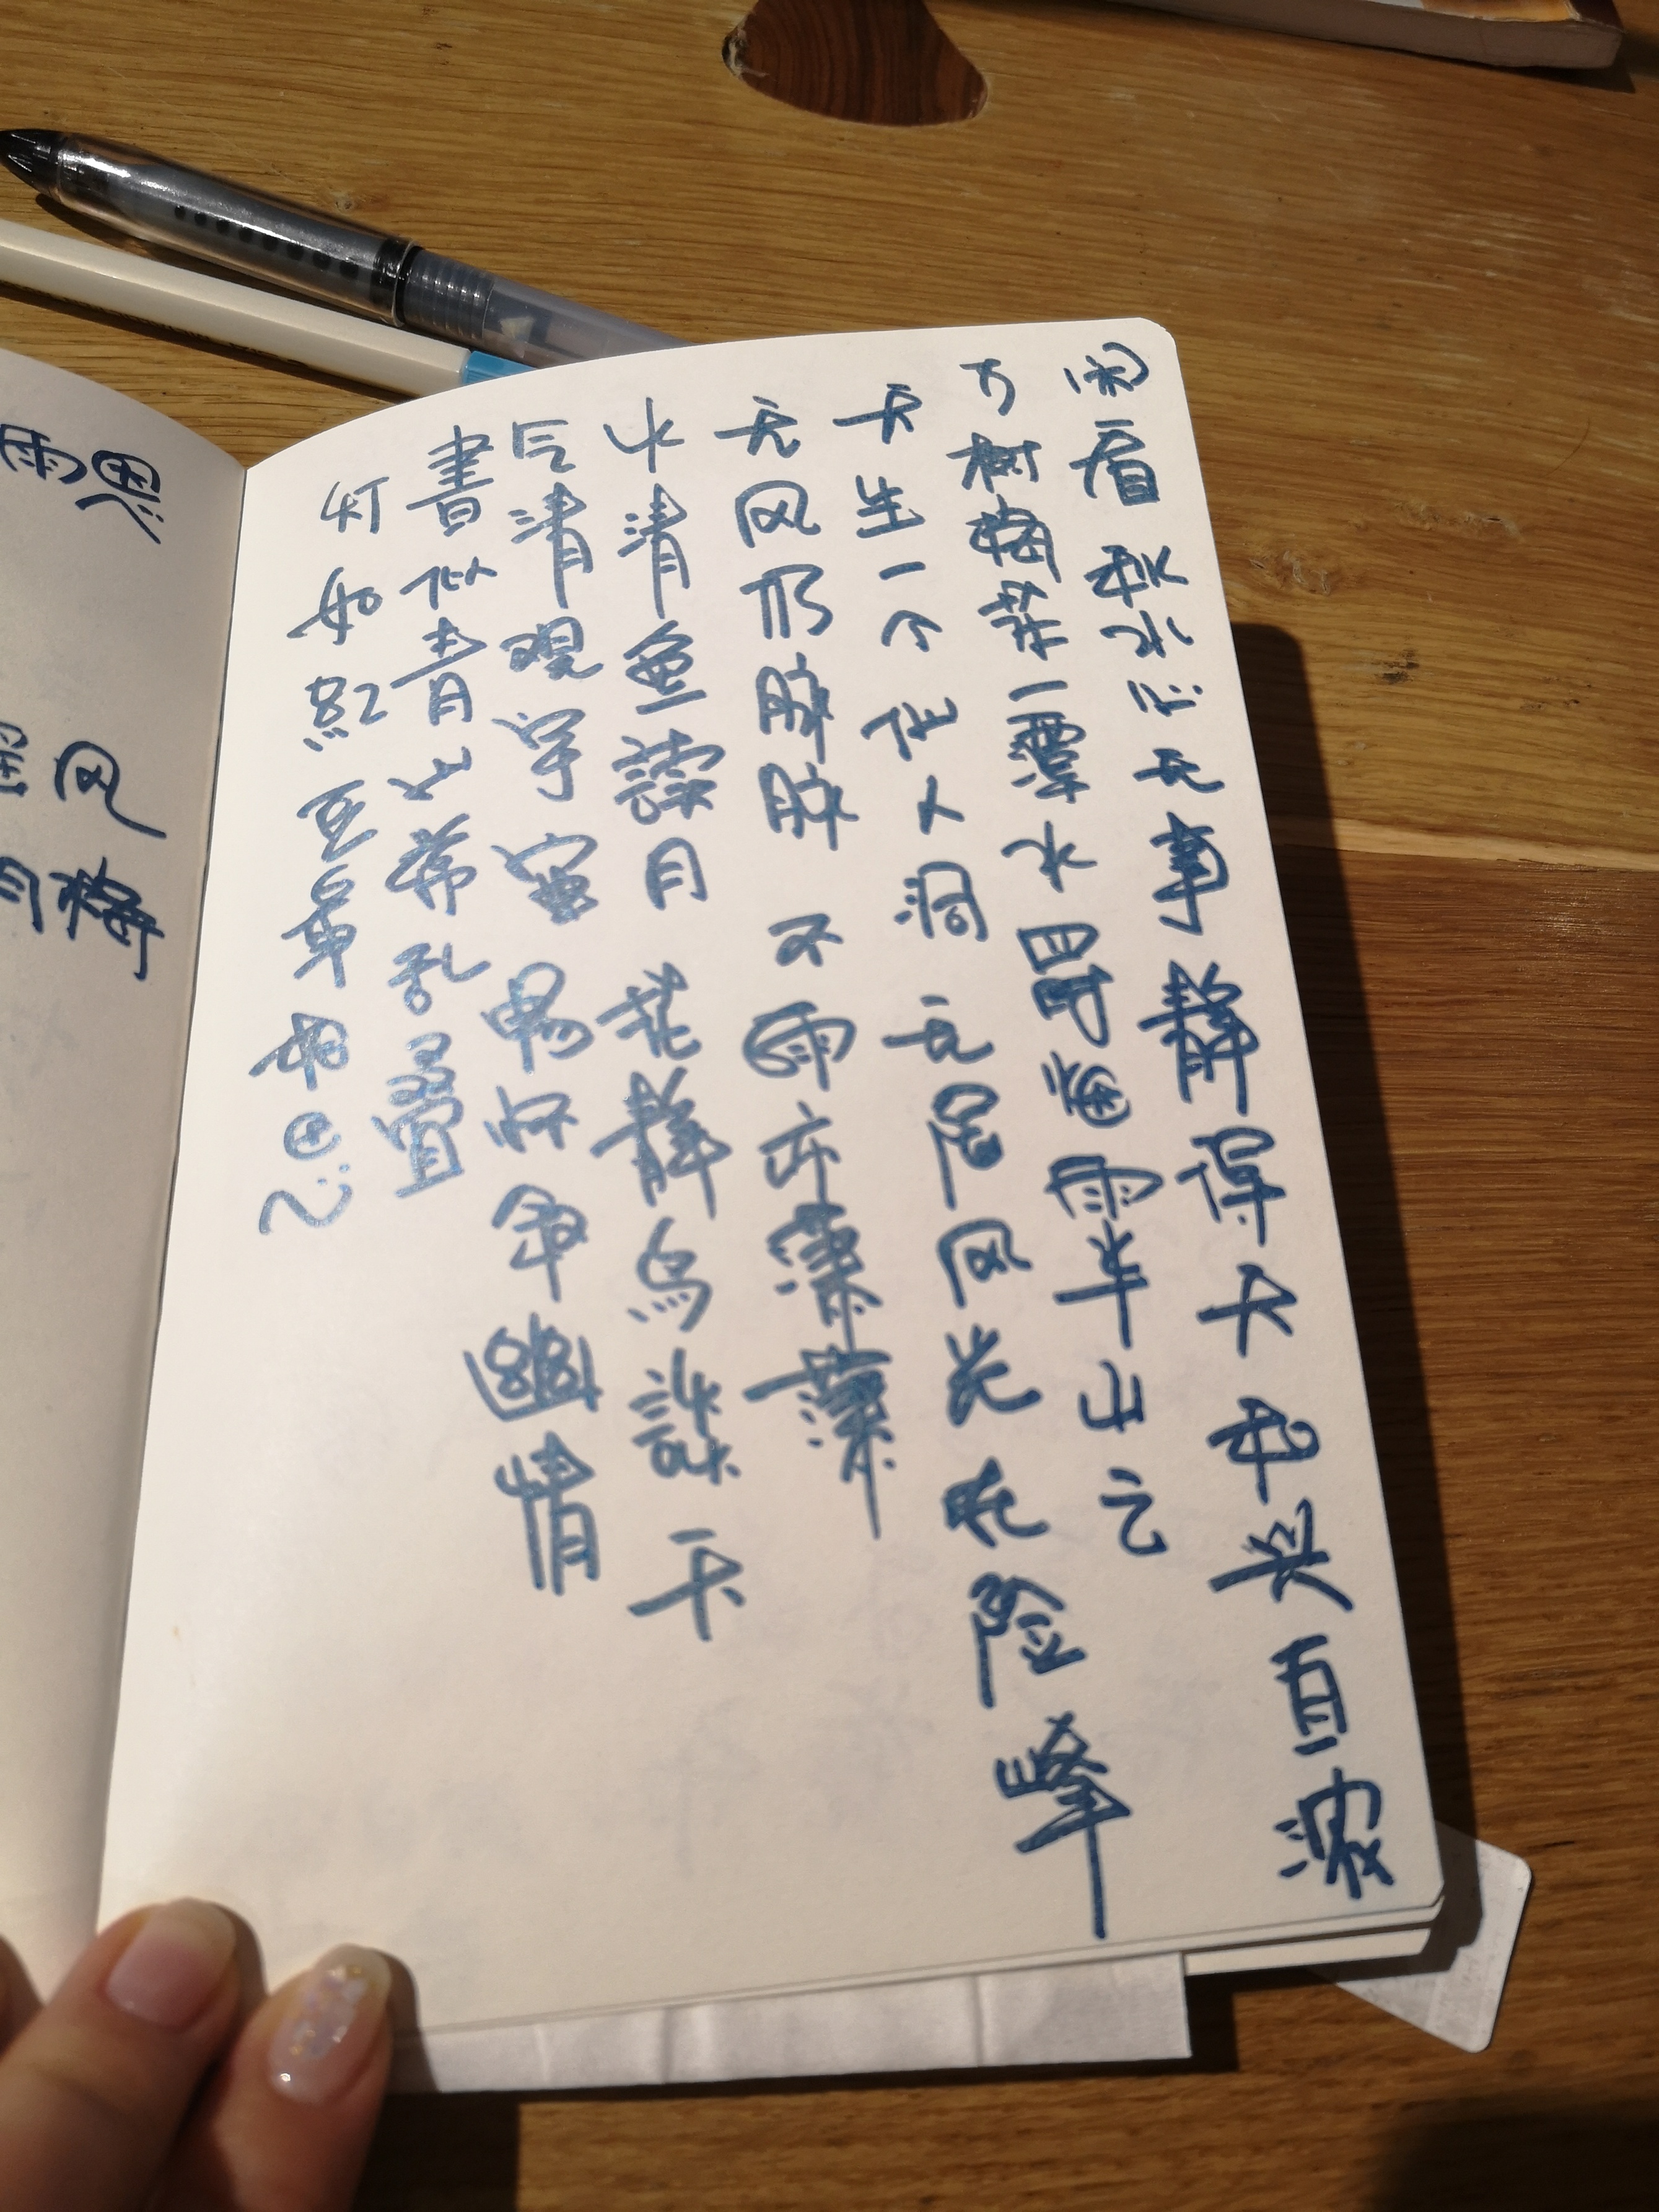 闲看秋水心无事 静得天和兴自浓
万树梅花一潭水 四时烟雨半山云
天生一个仙人洞 无限风光在险峰
无风仍脉脉 不雨亦潇潇
水清鱼读月 花静鸟谈天
气清观宇宙 畅怀年幽情
書似青山常乱叠
灯如红豆最相思
雨思
风
月梅